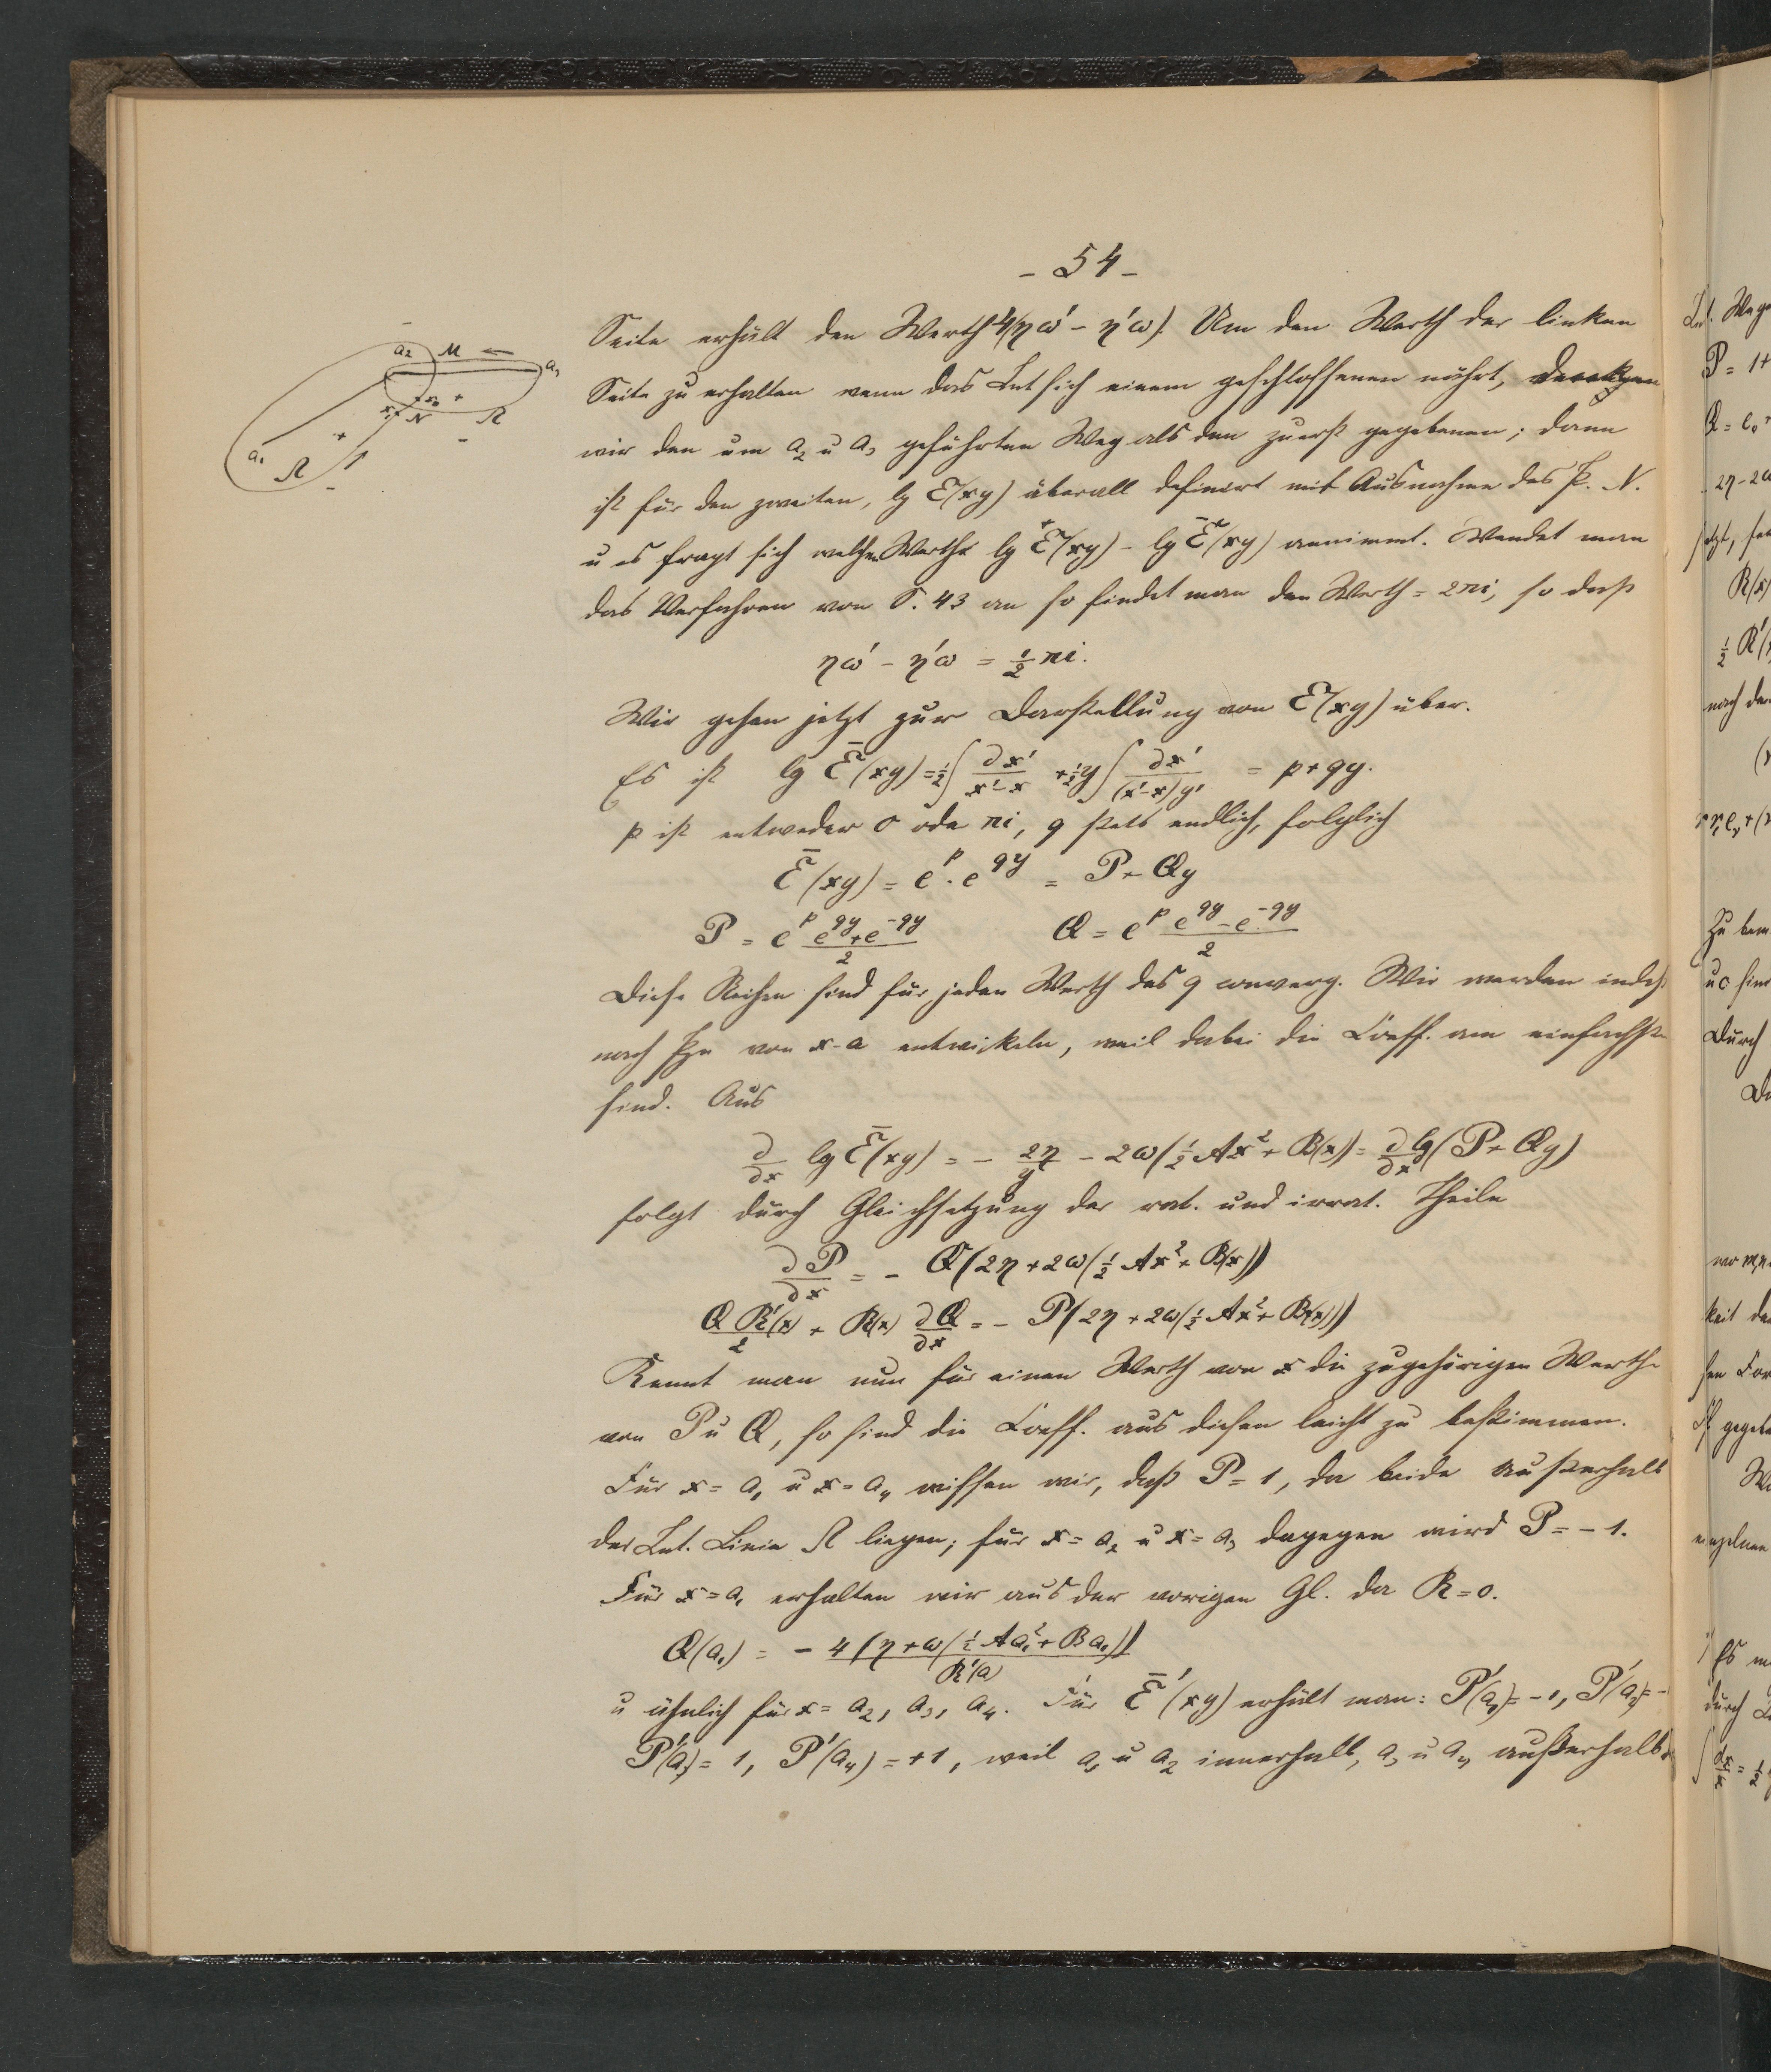 - 54 -
Seite erhält den Werth 4(ηω' - η'ω). Um den Werth der linken
Seite zu erhalten wenn das Int sich einem geschlossenen nährt, denken
wir den um a₂ u a₃ geführten Weg als den zuerst gegebenen; dann
ist für den zweiten, lg E(xy) überall definirt mit Ausnahme des P. N.
u es fragt sich welchen Werth lg E⁺(xy) - lg E⁻(xy) annimmt. Wendet man
das Verfahren von S. 43 an so findet man den Werth = 2πi, so daß
ηω' - η'ω = ½ πi.
Wir gehen jetzt zur Darstellung von E(xy) über.
Es ist lg Ē(xy) = ½ ∫ ∂x'/(x'-x) + ½ y ∫ ∂x'/((x'-x)y') = p + qy.
p ist entweder 0 oder πi, q stets endlich, folglich
Ē(xy) = e^p · e^{qy} = P + Qy
P = e^p (e^{qy} + e^{-qy})/2    Q = e^p (e^{qy} - e^{-qy})/2
Diese Reihen sind für jeden Werth des q converg. Wir werden indeß
nach Pzn von x-a entwickeln, weil dabei die Coeff. am einfachsten
sind. Aus
∂/∂x lg Ē(xy) = - 2η/y - 2ω(½ Ax² + B(x)) = ∂/∂x lg(P + Qy)
folgt durch Gleichsetzung der rat. und irrat. Theile
∂P/∂x = - Q(2η + 2ω(½ Ax² + B(x)))
Q R'(x)/2 + R(x) ∂Q/∂x = - P(2η + 2ω(½ Ax² + B(x)))
Kennt man nun für einen Werth von x die zugehörigen Werthe
von P u Q, so sind die Coeff. aus diesen leicht zu bestimmen.
Für x = a₁ u x = a₄ wissen wir, daß P = 1, da beide außerhalb
der Int. Linie K liegen; für x = a₂ u x = a₃ dagegen wird P = - 1.
Für x = a₁ erhalten wir aus der vorigen Gl. da R = 0.
Q(a₁) = - 4(η + ω(½ Aa₁² + Ba₁))/R'(a)
u ähnlich für x = a₂, a₃, a₄. Für Ē'(xy) erhält man: P'(a₁) = -1, P'(a₂) = -
P'(a₃) = 1, P'(a₄) = +1, weil a₁ u a₂ innerhalb, a₃ u a₄ außerhalb
a₂ M
a₃
x₀ +
x₁ N K
a₁
K